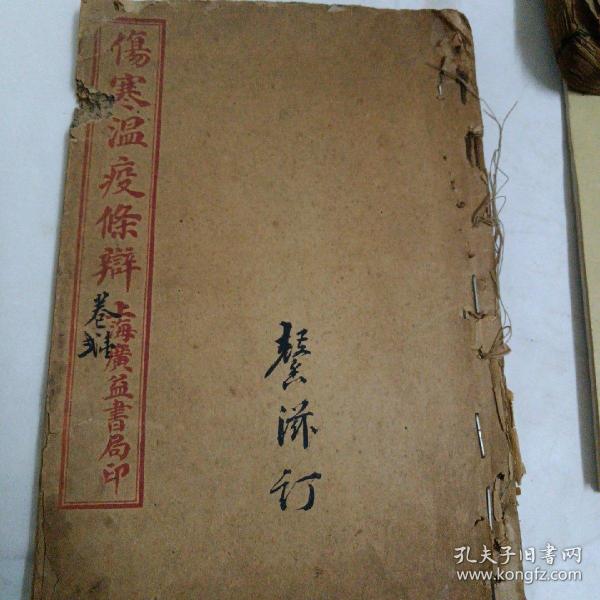 傷寒溫疫條辯
上海廣益書局印
卷
訂
孔夫子旧書网
www.kongfz.com